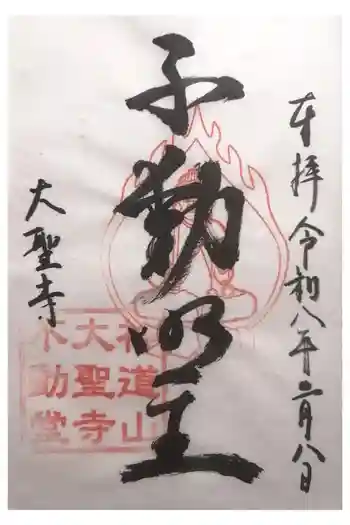 奉拝 令和八年二月八日
不動明王
大聖寺
神道山
大聖寺
不動堂